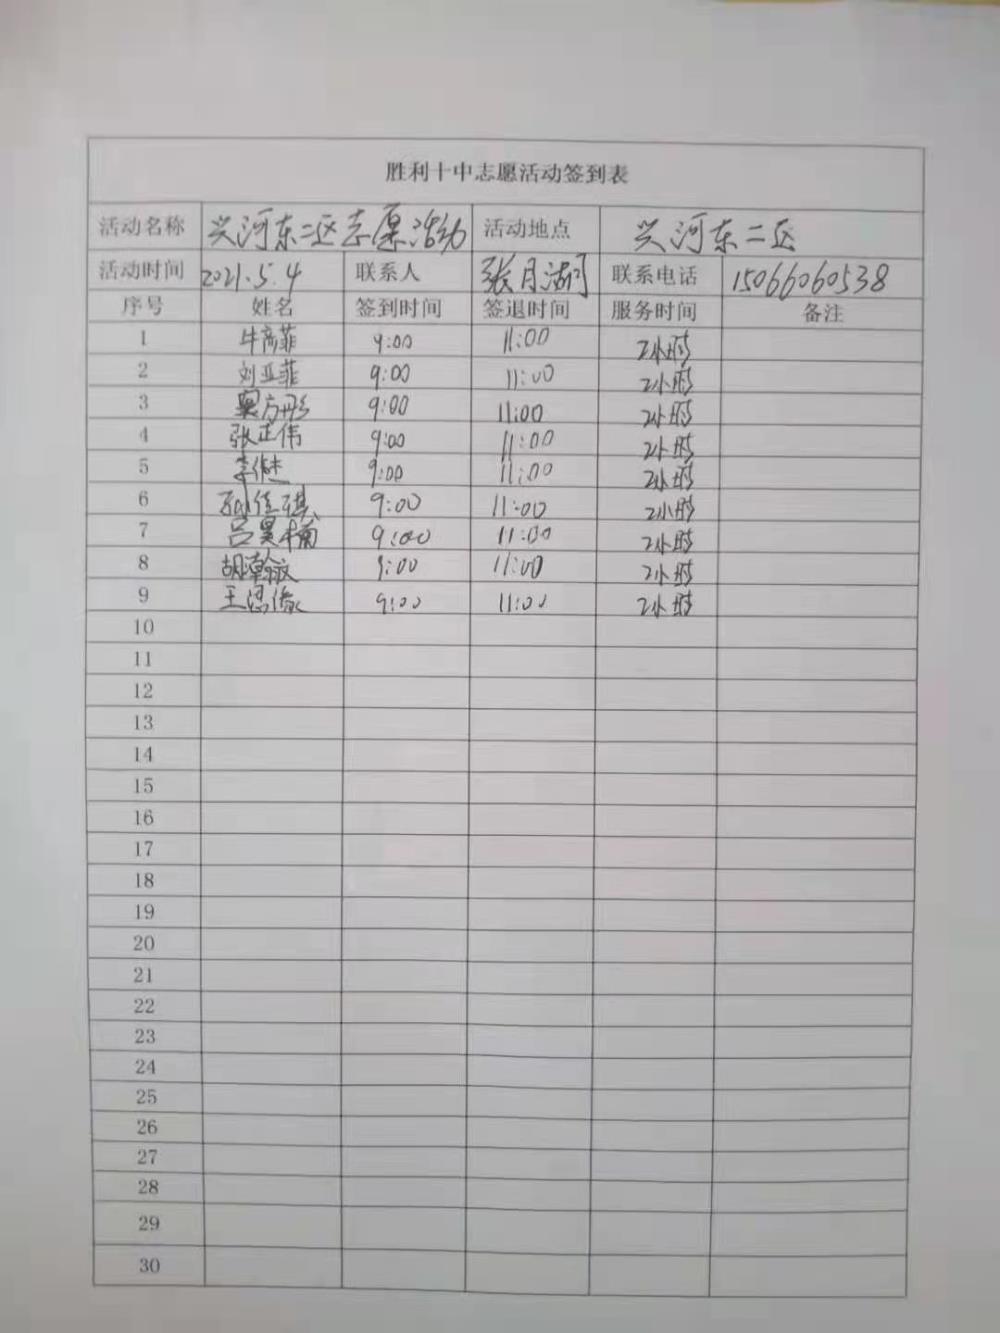 胜利十中志愿活动签到表
活动名称 兴河东二区志愿活动 活动地点 兴河东二区
活动时间 2021.5.4 联系人 张月湖 联系电话 15066060538
序号 姓名 签到时间 签退时间 服务时间 备注
1 牛彦菲 9:00 11:00 2小时
2 刘亚菲 9:00 11:00 2小时
3 方彤 9:00 11:00 2小时
4 张正伟 9:00 11:00 2小时
5 李继 9:00 11:00 2小时
6 佳琪 9:00 11:00 2小时
7 吕昊楠 9:00 11:00 2小时
8 胡瀚 9:00 11:00 2小时
9 王 9:00 11:00 2小时
10
11
12
13
14
15
16
17
18
19
20
21
22
23
24
25
26
27
28
29
30